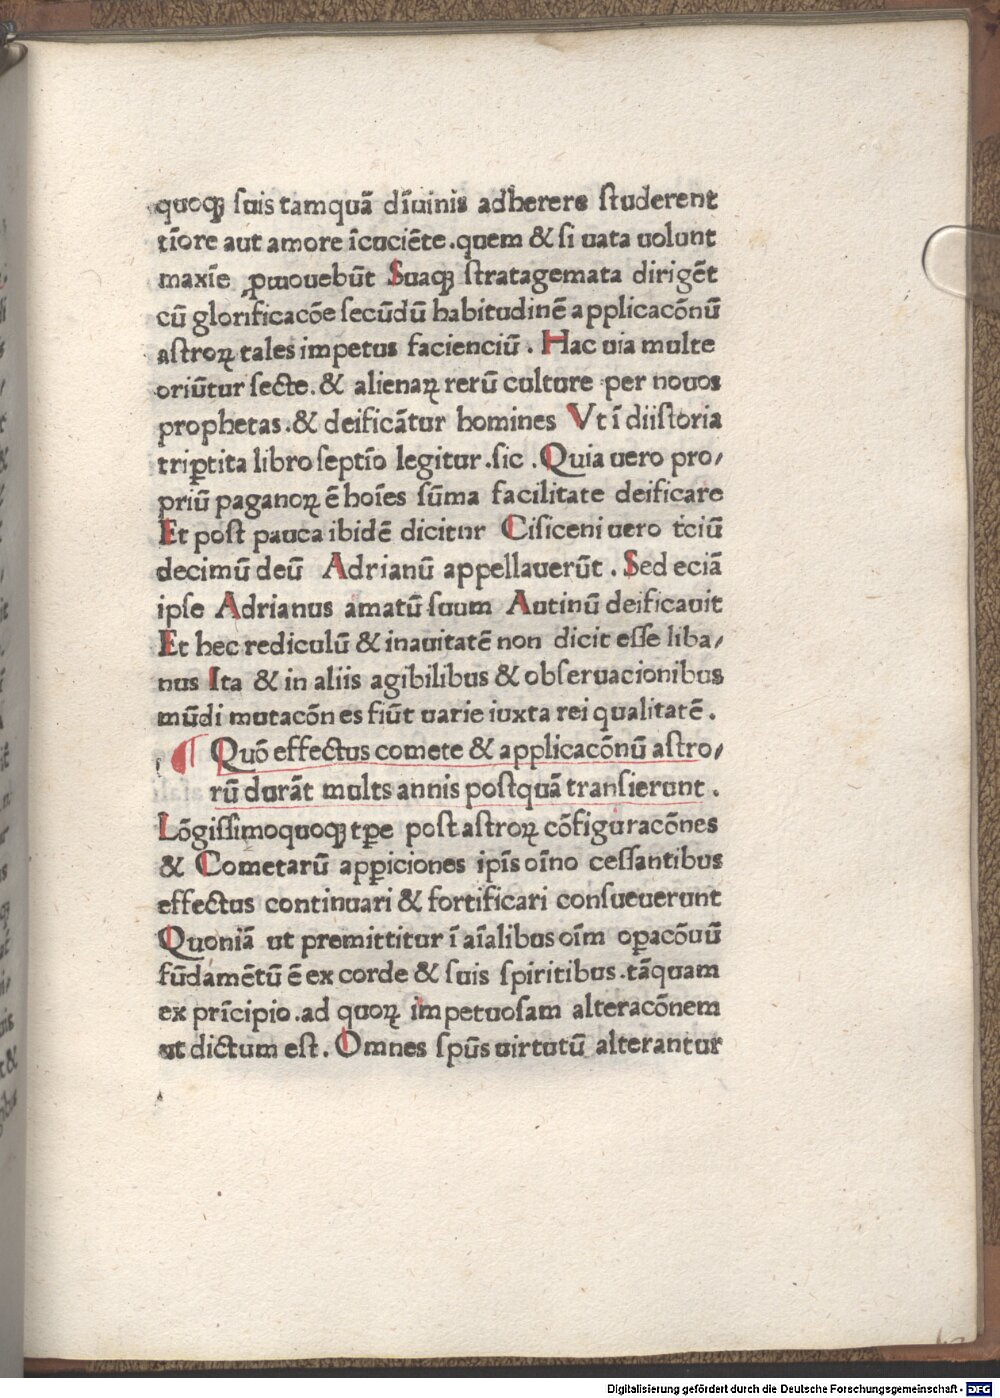 quoqꝫ ſuis tamquā dīuinis adherere ſtuderent
tīore aut amore īcuciēte.quem & ſi uata uolunt
maxīe ꝓmouebūt Suaqꝫ ſtratagemata dirigēt
cū glorificacōe ſecūdū habitudinē applicacōnū
aſtroꝝ tales impetus facienciū. Hac uia multe
oriūtur ſecte.& alienaꝝ rerū culture per nouos
prophetas.& deificātur homines Vt ī diiſtoria
triꝑtita libro ſeptīo legitur.ſic. Quia uero pro/
priū paganoꝝ ē hoīes ſūma facilitate deificare
Et poſt pauca ibidē dicitur Ciſiceni uero tciū
decimū deū Adrianū appellauerūt. Sed eciā
ipſe Adrianus amatū ſuum Autinū deificauit
Et hec rediculū & inauitatē non dicit eſſe liba/
nus Ita & in aliis agibilibus & obſeruacionibus
mūdi mutacōnes fiūt uarie iuxta rei qualitatē.
¶ Quō effectus comete & applicacōnū aſtro/
rū durāt mults annis poſtquā tranſierunt.
Lōgiſſimoquoqꝫ tꝑe poſt aſtroꝝ cōfiguracōnes
& Cometarū apꝑiciones ipīs oīno ceſſantibus
effectus continuari & fortificari conſueuerunt
Quoniā ut premittitur ī aīalibus oīm oꝑacōuū
fūdamētū ē ex corde & ſuis ſpiritibus.tāquam
ex prīcipio.ad quoꝝ impetuoſam alteracōnem
ut dictum eſt. Omnes ſpūs uirtutū alterantur
Digitalisierung gefördert durch die Deutsche Forschungsgemeinschaft - DFG